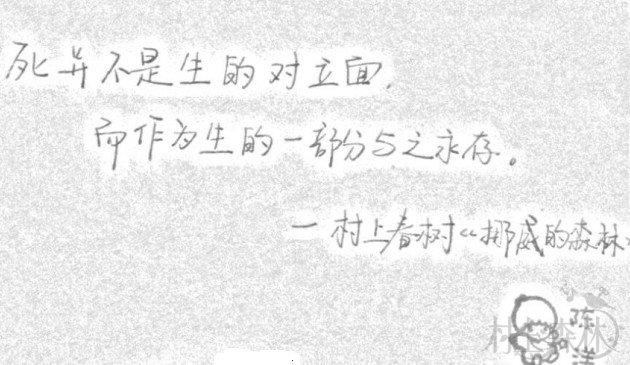 死并不是生的对立面,
而作为生的一部分与之永存。
—村上春树《挪威的森林》
陈
洋